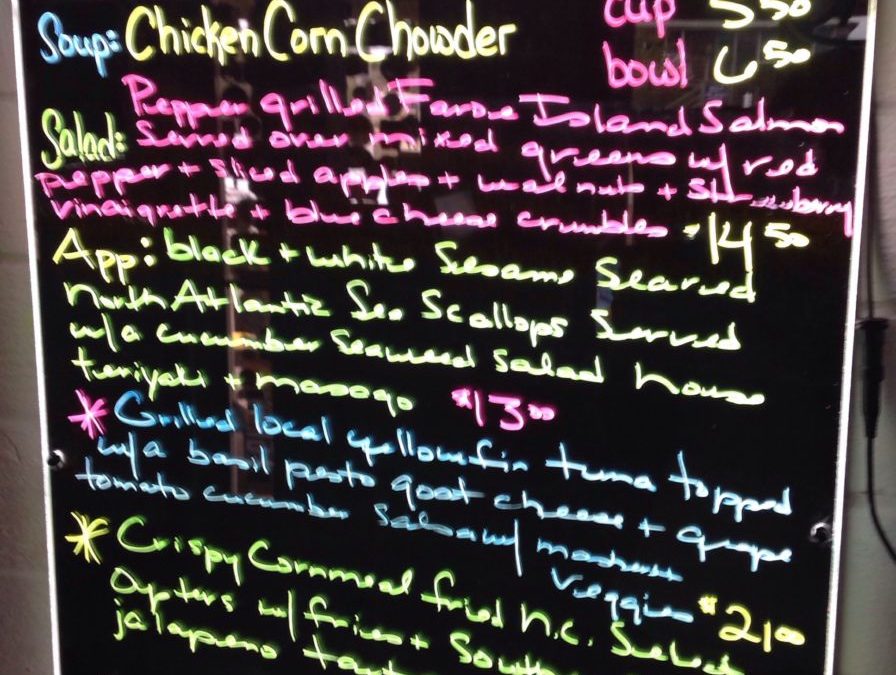 cup 5 50
Soup: Chicken Corn Chowder
bowl 6 50
Pepper grilled Faroe Island Salmon
Salad: Served over mixed greens w/ red
pepper + sliced apples + walnuts + Strawberry
vinaigrette + blue cheese crumbles $14 50
App: black + white Sesame Seared
North Atlantic Sea Scallops Served
w/a cucumber Seaweed Salad house
teriyaki + masago $13 00
* Grilled local yellowfin tuna topped
w/a basil pesto goat cheese + grape
tomato cucumber Salsa w/ mashers
veggies $21 00
* Crispy Cornmeal fried N.C. Select
Oysters w/ fries + South
jalapeno